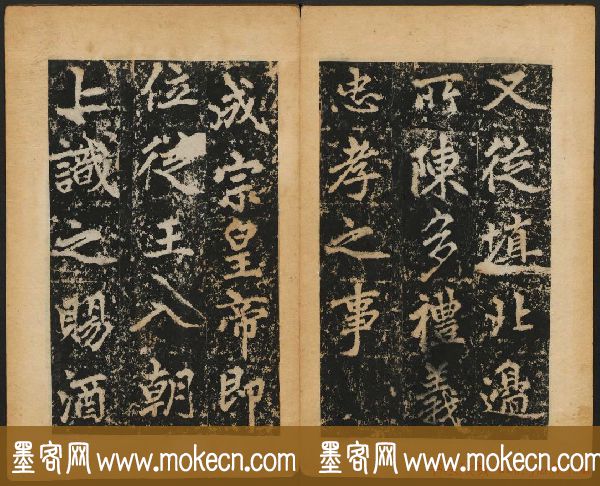 又從填北邊
所陳多禮義
忠孝之事
成宗皇帝即
位從王入朝
上識之賜酒
墨客网 www.mokecn.com 墨客网 www.mokecn.com